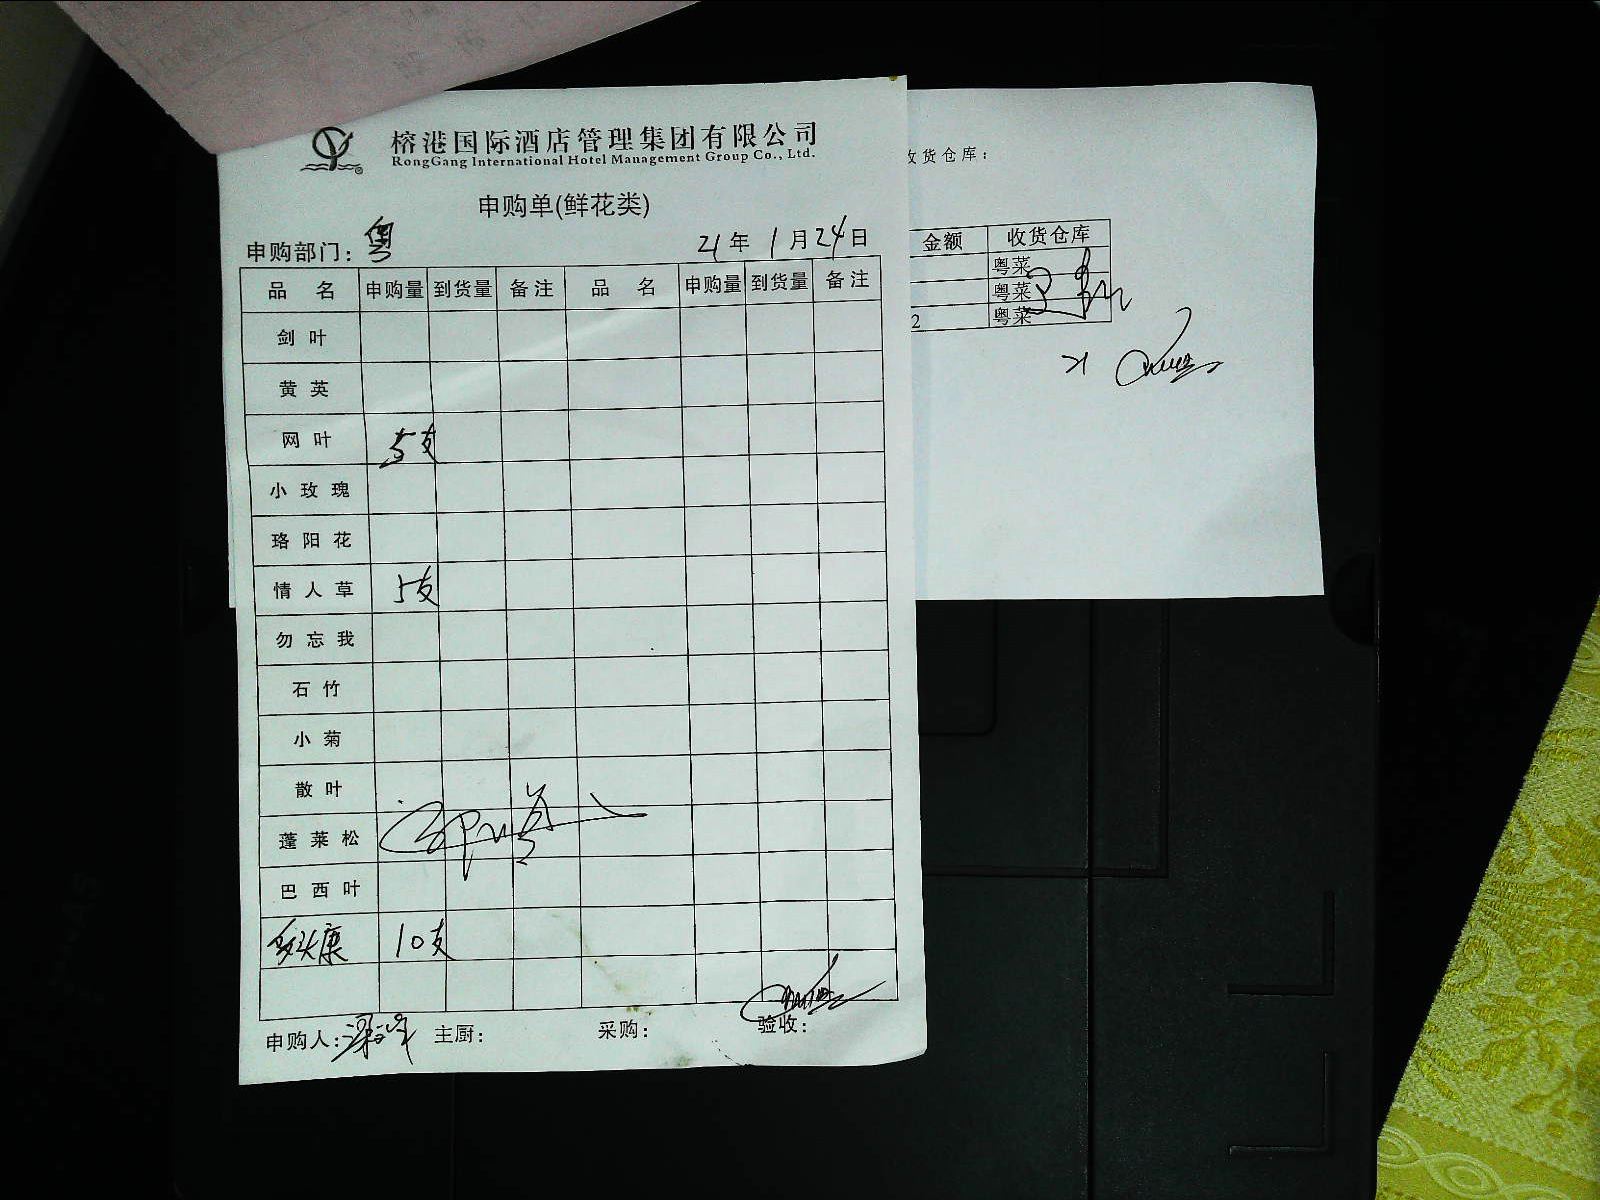 榕港国际酒店管理集团有限公司
RongGang International Hotel Management Group Co., Ltd.
申购单(鲜花类)
申购部门：粤 21年1月24日
品名 申购量 到货量 备注 品名 申购量 到货量 备注
剑叶
黄英
网叶 5支
小玫瑰
珞阳花
情人草 5支
勿忘我
石竹
小菊
散叶
蓬莱松
巴西叶
多头康 10支
申购人： 主厨： 采购： 验收：
收货仓库：
金额 收货仓库
粤菜
粤菜
2 粤菜